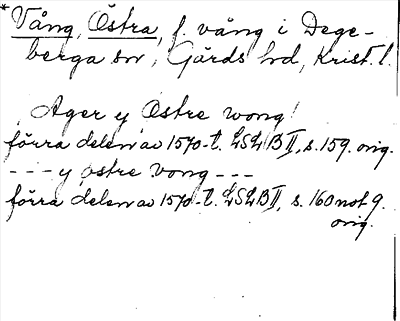 *Vång, Östra, f. vång i Dege-
berga sn, Gärds hd, Krist. l.
Ager y Østre wong!
förra delen av 1570-t. LSLB II, s. 159. orig.
--- y østre vong ---
förra delen av 1570-t. LSLB II, s. 160 not 9.
orig.